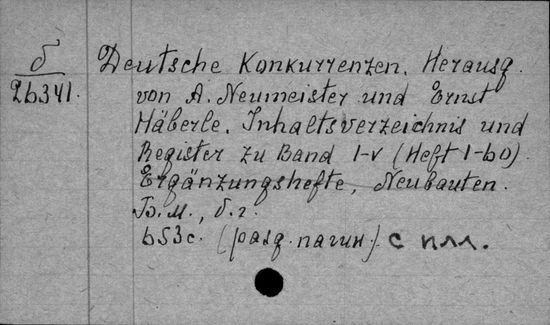 б
26341.
Deutsche Konkurrenzen. Herausg.
von A. Neumeister und Ernst
Häberle. Inhaltsverzeichnis und
Register zu Band I-V (Heft 1-60).
Ergänzungshefte, Neubauten.
Б.м., б.г.
653с. (разд. пагин.) с илл.